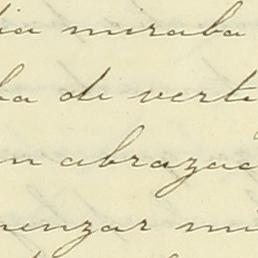 dia miraba
ba de verte
n abrazac
menzar mi